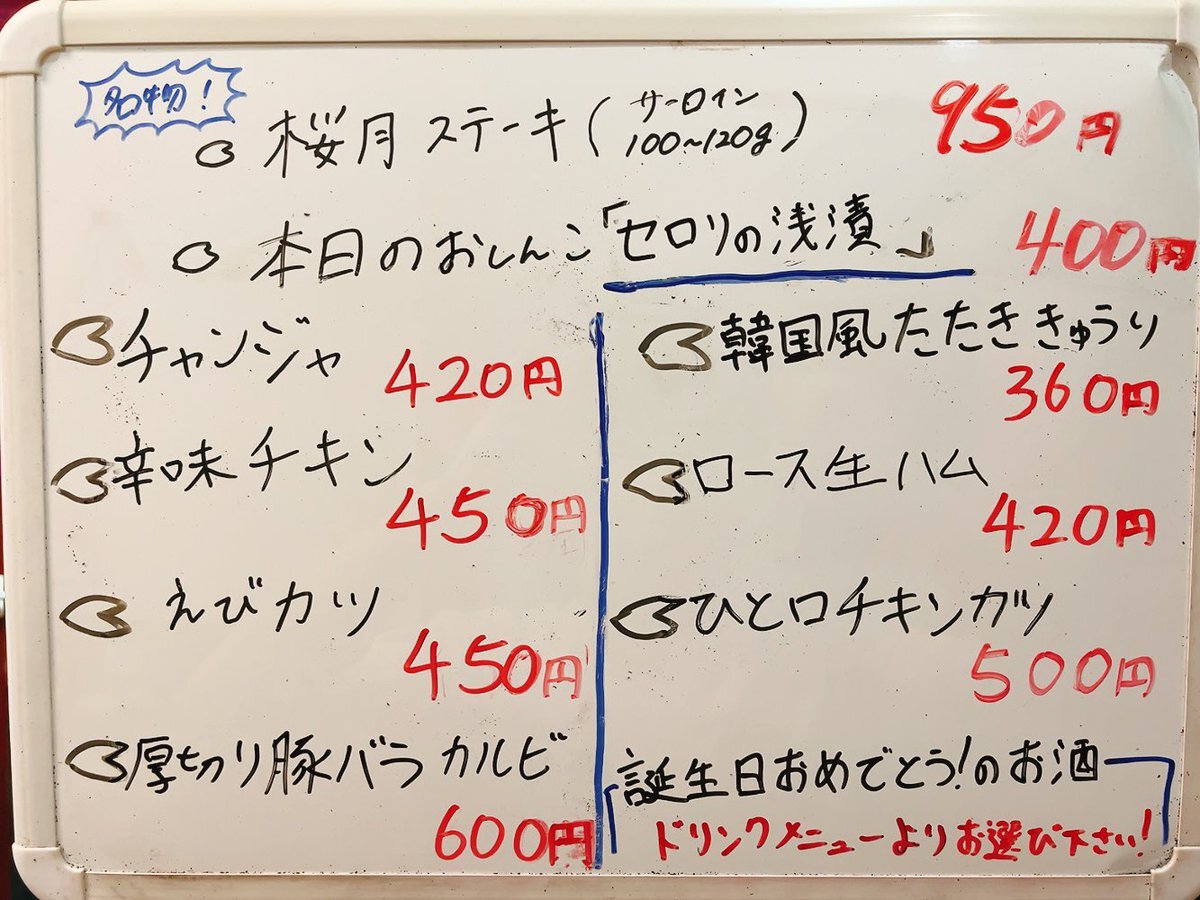 名物!
桜月ステーキ(サーロイン 100~120g) 950円
本日のおしんこ「セロリの浅漬」 400円
チャンジャ
420円
辛味チキン
450円
えびカツ
450円
厚切り豚バラカルビ
600円
韓国風たたききゅうり
360円
ロース生ハム
420円
ひと口チキンカツ
500円
誕生日おめでとう!のお酒
ドリンクメニューよりお選び下さい!